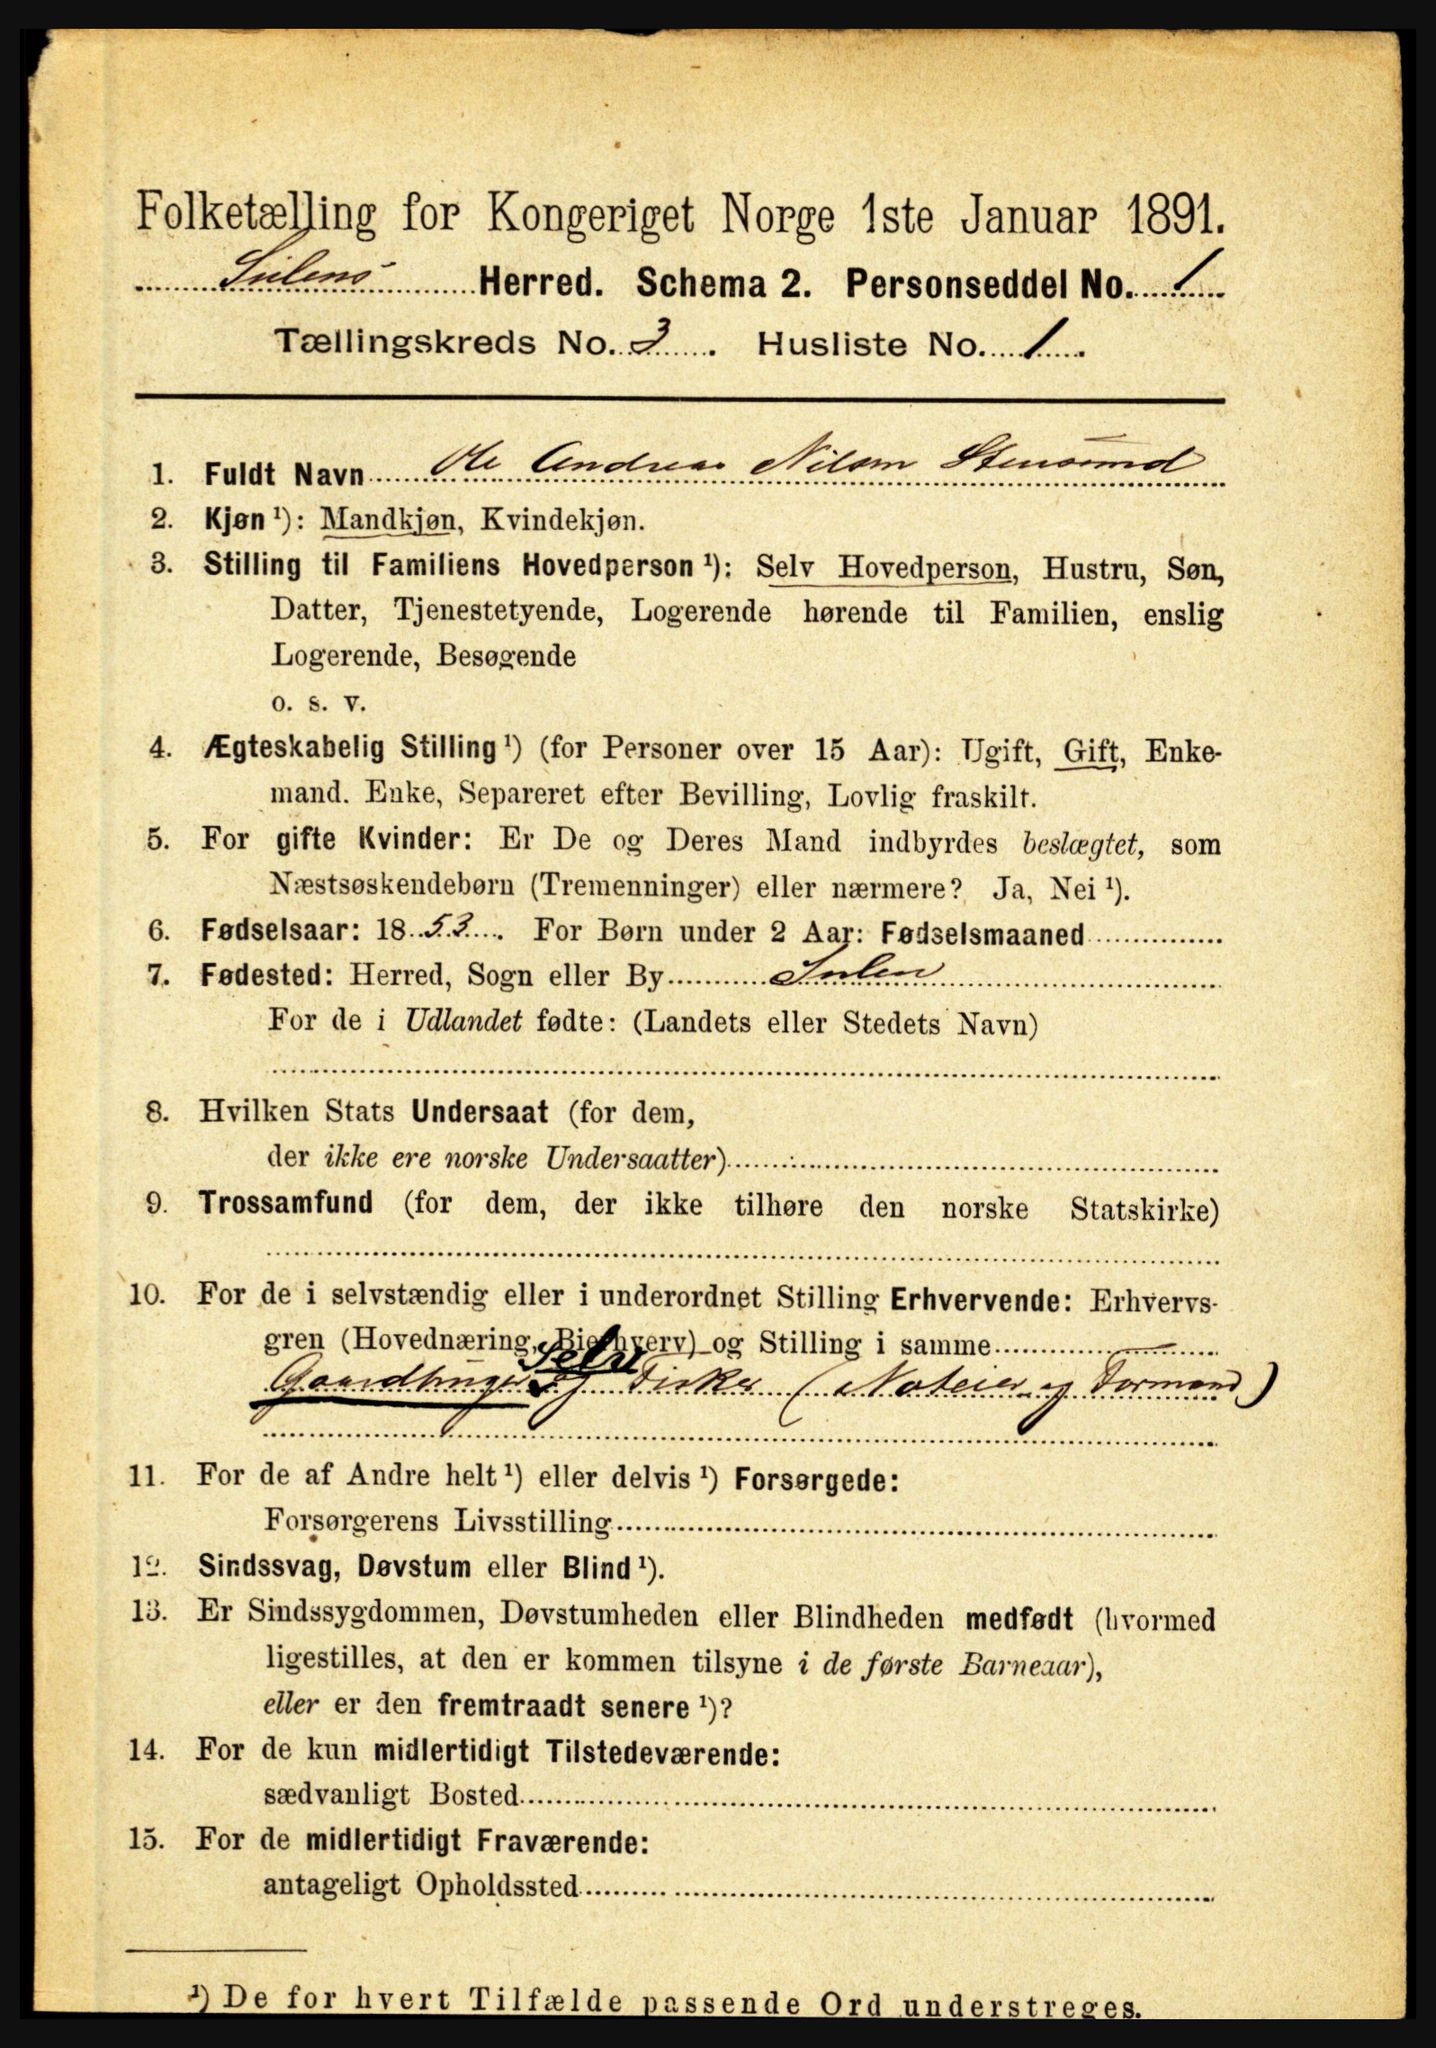 Folketælling for Kongeriget Norge 1ste Januar 1891.
Sulens Herred. Schema 2. Personseddel No. 1
Tællingskreds No. 3. Husliste No. 1.
1. Fuldt Navn Ole Andreas Nilsen Stensund
2. Kjøn ¹): Mandkjøn, Kvindekjøn.
3. Stilling til Familiens Hovedperson ¹): Selv Hovedperson, Hustru, Søn,
Datter, Tjenestetyende, Logerende hørende til Familien, enslig
Logerende, Besøgende
o. s. v.
4. Ægteskabelig Stilling ¹) (for Personer over 15 Aar): Ugift, Gift, Enke-
mand. Enke, Separeret efter Bevilling, Lovlig fraskilt.
5. For gifte Kvinder: Er De og Deres Mand indbyrdes beslægtet, som
Næstsøskendebørn (Tremenninger) eller nærmere? Ja, Nei ¹).
6. Fødselsaar: 1853. For Børn under 2 Aar: Fødselsmaaned
7. Fødested: Herred, Sogn eller By Sulen
For de i Udlandet fødte: (Landets eller Stedets Navn)
8. Hvilken Stats Undersaat (for dem,
der ikke ere norske Undersaatter)
9. Trossamfund (for dem, der ikke tilhøre den norske Statskirke)
10. For de i selvstændig eller i underordnet Stilling Erhvervende: Erhvervs-
gren (Hovednæring, Bierhverv) og Stilling i samme
Selv
Gaardbruger og Fisker (Noteier og Formand)
11. For de af Andre helt ¹) eller delvis ¹) Forsørgede:
Forsørgerens Livsstilling
12. Sindssvag, Døvstum eller Blind ¹).
13. Er Sindssygdommen, Døvstumheden eller Blindheden medfødt (hvormed
ligestilles, at den er kommen tilsyne i de første Barneaar),
eller er den fremtraadt senere ¹)?
14. For de kun midlertidigt Tilstedeværende:
sædvanligt Bosted
15. For de midlertidigt Fraværende:
antageligt Opholdssted
¹) De for hvert Tilfælde passende Ord understreges.